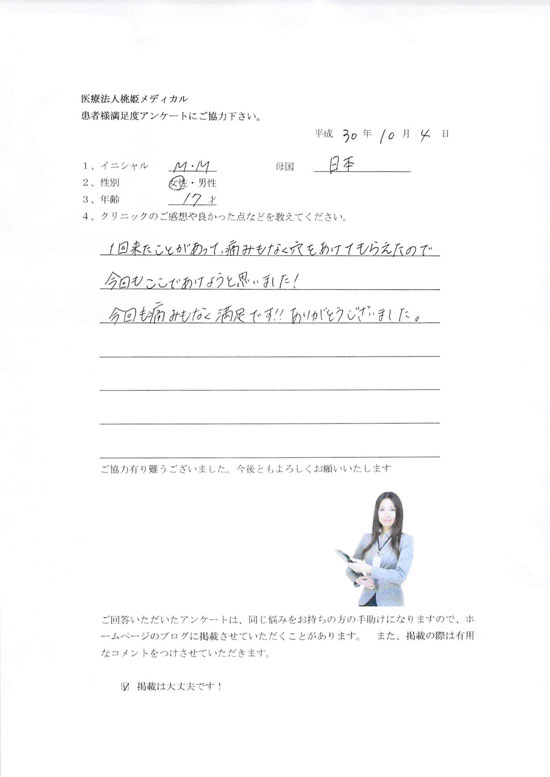 医療法人桃姫メディカル
患者様満足度アンケートにご協力下さい。
平成 30 年 10 月 4 日
1、イニシャル M・M 母国 日本
2、性別 女性・男性
3、年齢 17 才
4、クリニックのご感想や良かった点などを教えてください。
1回来たことがあって、痛みもなく穴をあけてもらえたので
今回もここであけようと思いました!
今回も痛みもなく満足です!!ありがとうございました。
ご協力有り難うございました。今後ともよろしくお願いいたします
ご回答いただいたアンケートは、同じ悩みをお持ちの方の手助けになりますので、ホ
ームページのブログに掲載させていただくことがあります。 また、掲載の際は有用
なコメントをつけさせていただきます。
☑ 掲載は大丈夫です!